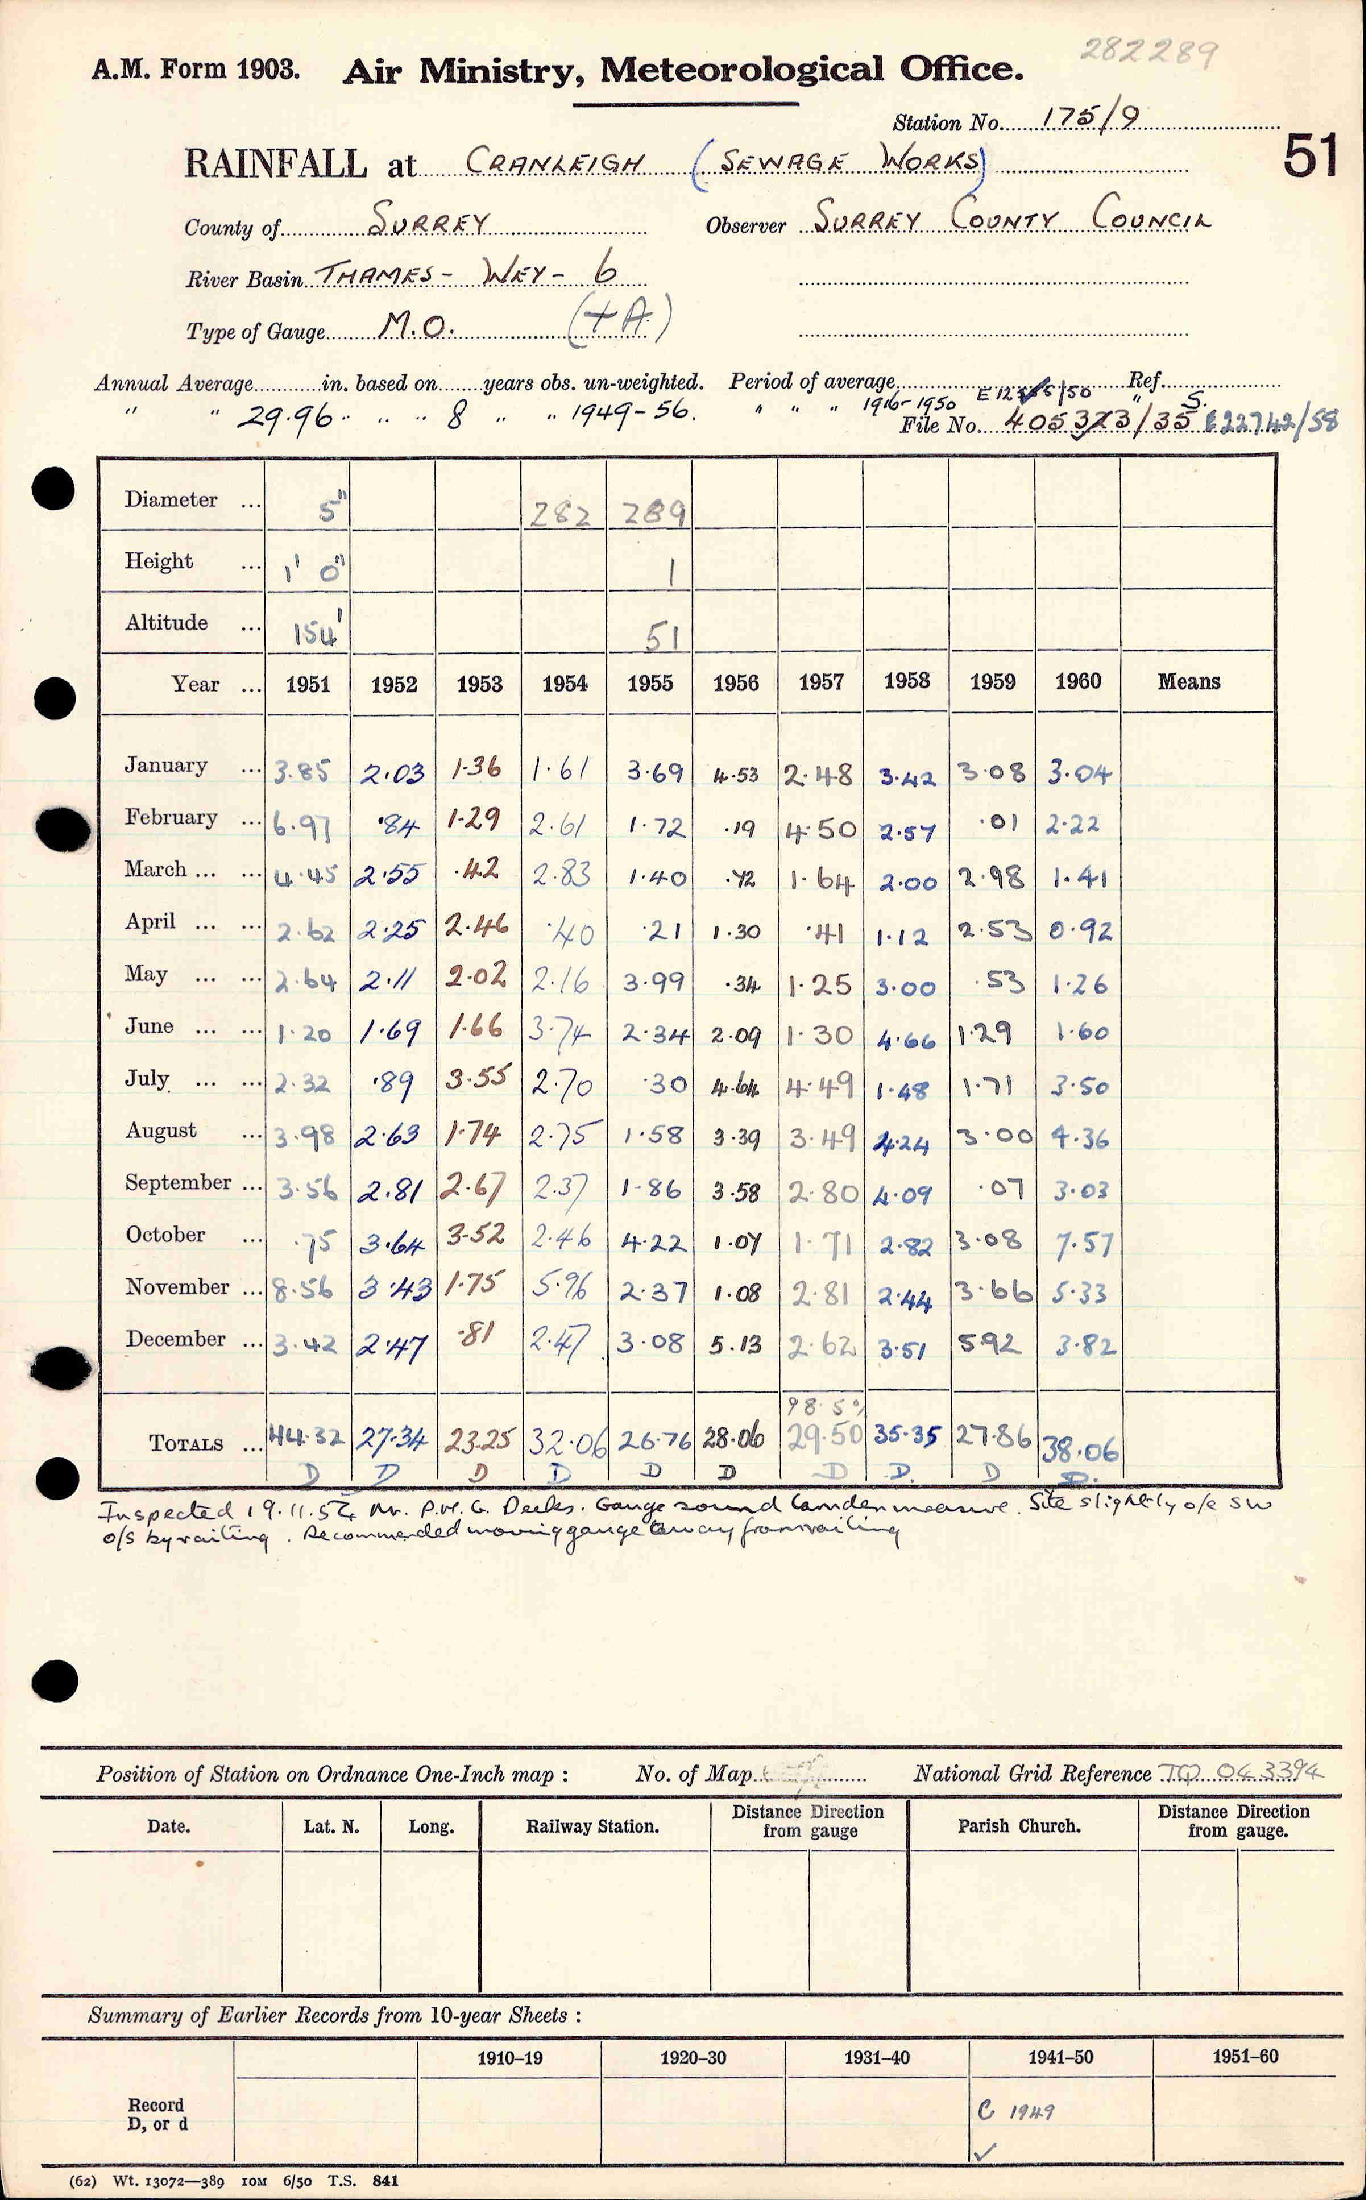 282289
A.M. Form 1903. Air Ministry, Meteorological Office.
Station No. 175/9
51
RAINFALL at CRANLEIGH (SEWAGE WORKS)
County of SURREY Observer SURREY COUNTY COUNCIL
River Basin THAMES - WEY - 6
Type of Gauge M.O. (+A)
Annual Average in. based on years obs. un-weighted. Period of average Ref.
" " 29.96 " " " 8 " " 1949-56. " " " 1916-1950 "
File No. 405323/35 S. E22742/58
Diameter ... 5" 282 289
Height ... 1' 0" 1
Altitude ... 154' 51
Year ... 1951 1952 1953 1954 1955 1956 1957 1958 1959 1960 Means
January ... 3.85 2.03 1.36 1.61 3.69 4.53 2.48 3.42 3.08 3.04
February ... 6.97 .84 1.29 2.61 1.72 .19 4.50 2.57 .01 2.22
March ... ... 4.45 2.55 .42 2.83 1.40 .72 1.64 2.00 2.98 1.41
April ... ... 2.62 2.25 2.46 .40 .21 1.30 .41 1.12 2.53 0.92
May ... ... 2.64 2.11 2.02 2.16 3.99 .34 1.25 3.00 .53 1.26
June ... ... 1.20 1.69 1.66 3.74 2.34 2.09 1.30 4.66 1.29 1.60
July ... ... 2.32 .89 3.55 2.70 .30 4.64 4.49 1.48 1.71 3.50
August ... 3.98 2.63 1.74 2.75 1.58 3.39 3.49 4.24 3.00 4.36
September ... 3.56 2.81 2.67 2.37 1.86 3.58 2.80 4.09 .07 3.03
October ... .75 3.64 3.52 2.46 4.22 1.07 1.71 2.82 3.08 7.57
November ... 8.56 3.43 1.75 5.96 2.37 1.08 2.81 2.44 3.66 5.33
December ... 3.42 2.47 .81 2.47 3.08 5.13 2.62 3.51 5.92 3.82
98.5%
TOTALS ... 44.32 27.34 23.25 32.06 26.76 28.06 29.50 35.35 27.86 38.06
D D D D D D D D. D D.
Inspected 19.11.54 Mr. P.H.G. Deeks. Gauge sound Camden measure. Site slightly o/e SW
o/s by railing. Recommended moving gauge away from railing
Position of Station on Ordnance One-Inch map : No. of Map National Grid Reference TQ 043394
Date. Lat. N. Long. Railway Station. Distance Direction from gauge Parish Church. Distance Direction from gauge.
Summary of Earlier Records from 10-year Sheets :
1910–19 1920–30 1931–40 1941–50 1951–60
Record
D, or d
C 1949
✓
(62) Wt. 13072—389 10M 6/50 T.S. 841